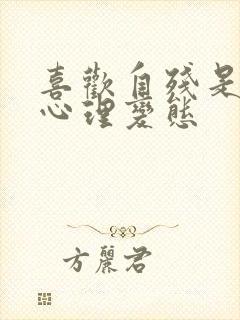 喜歡自殘是
心理變態
方麗君